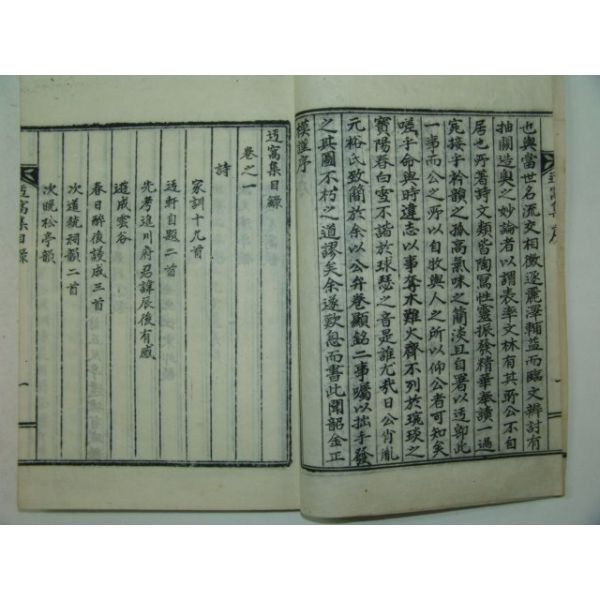 也與當世名流交相徵逐麗澤輔益而臨文辨討有
抽關造奧之妙論者以謂表率文林有其所公不自
居也所著詩文類皆陶寫性靈振發精華奉讀一過
宛接乎衿韻之孤高氣味之簡淡且自署以迃卽此
一事而公之所以自牧與人之所以仰公者可知矣
嗟乎命與時違志以事奪木難火齊不列於琬琰之
寶陽春白雪不諧於球瑟之音是誰尤哉日公肖胤
元裕氏致簡於余以公弁卷顯銘二事囑以拙手發
之其圖不朽之道謬矣余遂歎息而書此聞韶金正
模謹序
迃窩集目錄
卷之一
詩
家訓十九首
迃軒自題二首
先考進川府君諱辰後有感
遊成雲谷
春日醉後謾成三首
次道統祠韻二首
次晩松亭韻
迃窩集目錄
一